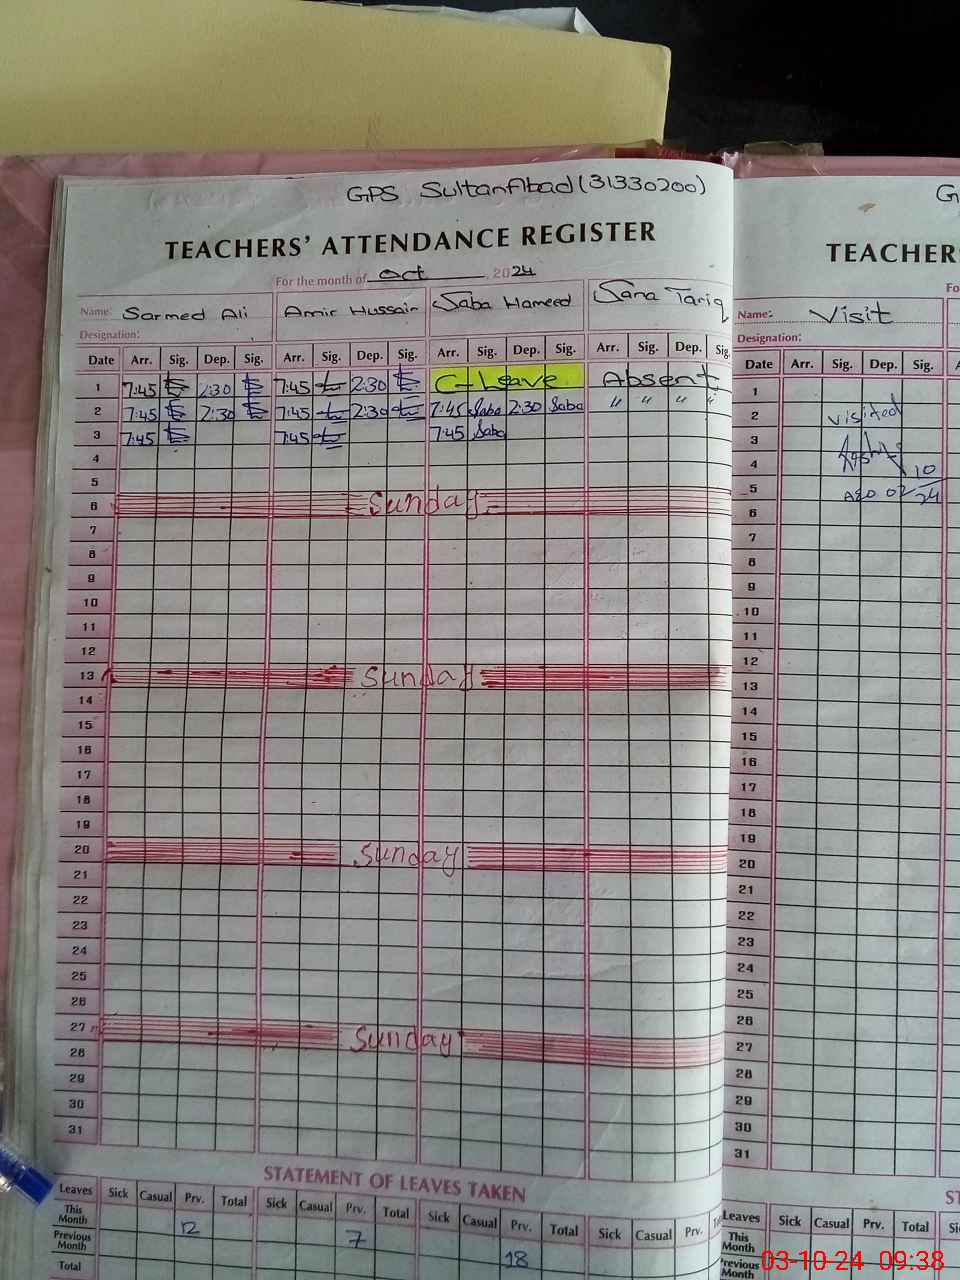 GPS SultanAbad (31330200)
TEACHERS' ATTENDANCE REGISTER
For the month of Oct, 2024
Name: Sarmed Ali Amir Hussain Saba Hameed Sana Tariq
Designation:
Date Arr. Sig. Dep. Sig. Arr. Sig. Dep. Sig. Arr. Sig. Dep. Sig. Arr. Sig. Dep. Sig.
1 7:45 2:30 7:45 2:30 C-Leave Absent
2 7:45 2:30 7:45 2:30 7:45 Saba 2:30 Saba " " " "
3 7:45 7:45 7:45 Saba
4
5
6 Sunday
7
8
9
10
11
12
13 Sunday
14
15
16
17
18
19
20 Sunday
21
22
23
24
25
26
27 Sunday
28
29
30
31
STATEMENT OF LEAVES TAKEN
Leaves Sick Casual Prv. Total Sick Casual Prv. Total Sick Casual Prv. Total Sick Casual Prv.
This Month
Previous Month 12 7 18
Total
G
TEACHERS
Fo
Name: Visit
Designation:
Date Arr. Sig. Dep. Sig. A
1
2 visited
3
4 10
5 AEO 02 24
6
7
8
9
10
11
12
13
14
15
16
17
18
19
20
21
22
23
24
25
26
27
28
29
30
31
ST
Leaves Sick Casual Prv. Total Si
This Month
Previous Month
03-10-24 09:38